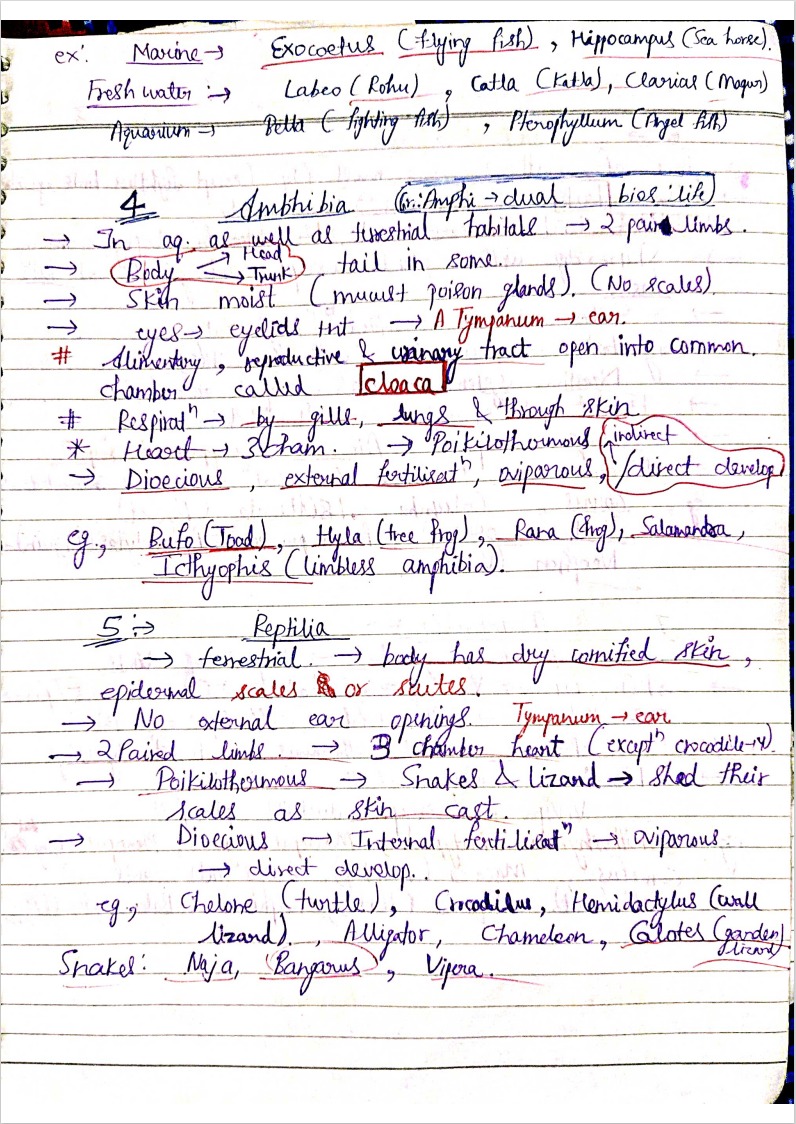 ex: Marine → Exocoetus (flying fish), Hippocampus (Sea horse).
Fresh water :→ Labeo (Rohu), Catla (Katla), Clarias (Magur)
Aquarium → Betta (fighting fish), Pterophyllum (Angel fish)
4 Amphibia Gr: Amphi → dual | bios: life
→ In aq. as well as terrestrial habitats → 2 pair limbs.
→ Body → Head → Trunk tail in some.
→ Skin moist (mucust poison glands). (No scales)
→ eyes → eyelids tnt → A Tympanum → ear.
# Alimentary, reproductive & urinary tract open into common
chamber called cloaca
# Respiratⁿ → by gills, lungs & through skin
* Heart → 3 Cham. → Poikilothermous indirect
→ Dioecious, external fertilisatⁿ, oviparous, /direct develop
eg., Bufo (Toad), Hyla (tree frog), Rana (frog), Salamandra,
Icthyophis (limbless amphibia).
5 :→ Reptilia
→ terrestrial. → body has dry cornified skin,
epidermal scales or scutes.
→ No external ear openings. Tympanum → ear
→ 2 Paired limbs. → 3 chamber heart (exceptⁿ crocodile→4).
→ Poikilothermous → Snakes & lizard → shed their
scales as skin cast.
→ Dioecious → Internal fertilisatⁿ → oviparous
→ direct develop..
eg., Chelone (turtle), Crocodilus, Hemidactylus (wall
lizard)., Alligator, Chameleon, Calotes (garden
lizard)
Snakes: Naja, Bangarus, Vipera.